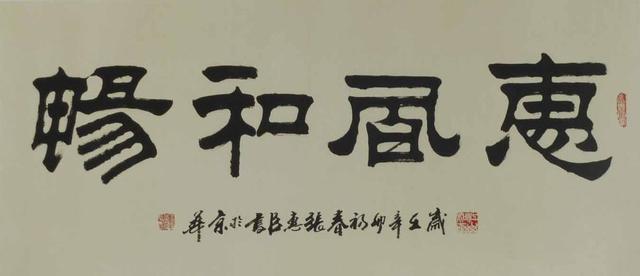 惠風和暢
歲在辛卯初春張惠臣書於京華